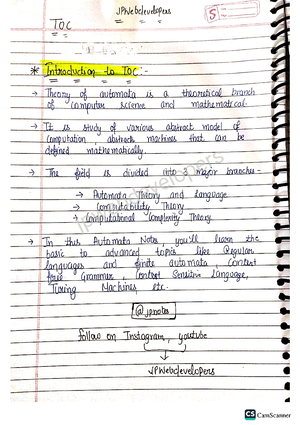 JPWebdevelopers
TOC
* Introduction to TOC:-
→ Theory of automata is a theoretical branch
of computer science and mathematical.
→ It is study of various abstract model of
computation, abstracts machines that can be
defined mathematically.
→ The field is divided into 3 major branches-
→ Automata Theory and language
→ Computability Theory
→ Computational Complexity Theory
→ In this Automata Notes, you'll learn the
basic to advanced topics like Regular
languages and finite automata Context
free Grammar, Context Sensitive language,
Turing Machines etc.
@jpnotes
follow on Instagram, youtube
JPWebdevelopers
CS CamScanner